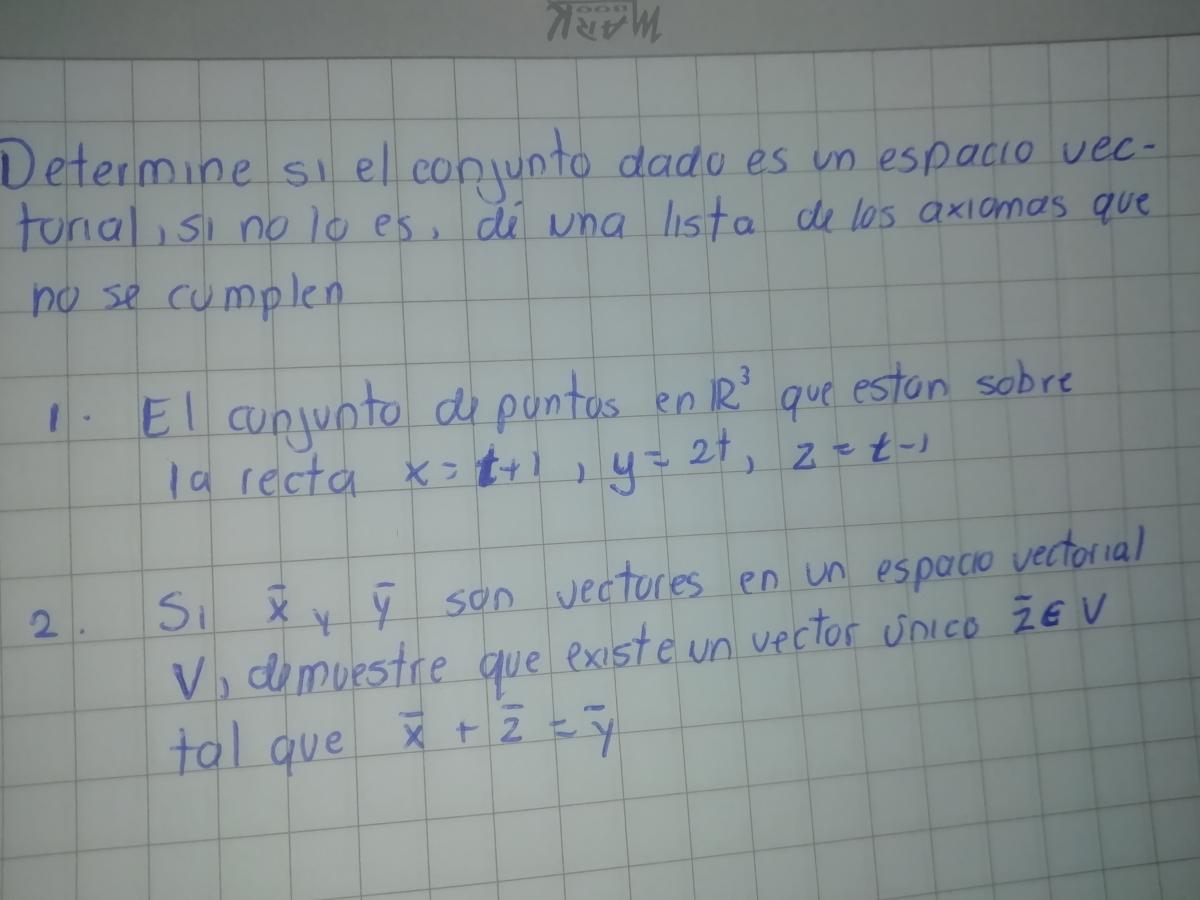 MARK
Determine si el conjunto dado es un espacio vec-
torial, si no lo es, dé una lista de los axiomas que
no se cumplen
1. El conjunto de puntos en ℝ³ que estan sobre
la recta x = t+1, y = 2t, z = t-1
2. Si x̄ y ȳ son vectores en un espacio vectorial
V, demuestre que existe un vector único z̄ ∈ V
tal que x̄ + z̄ = ȳ